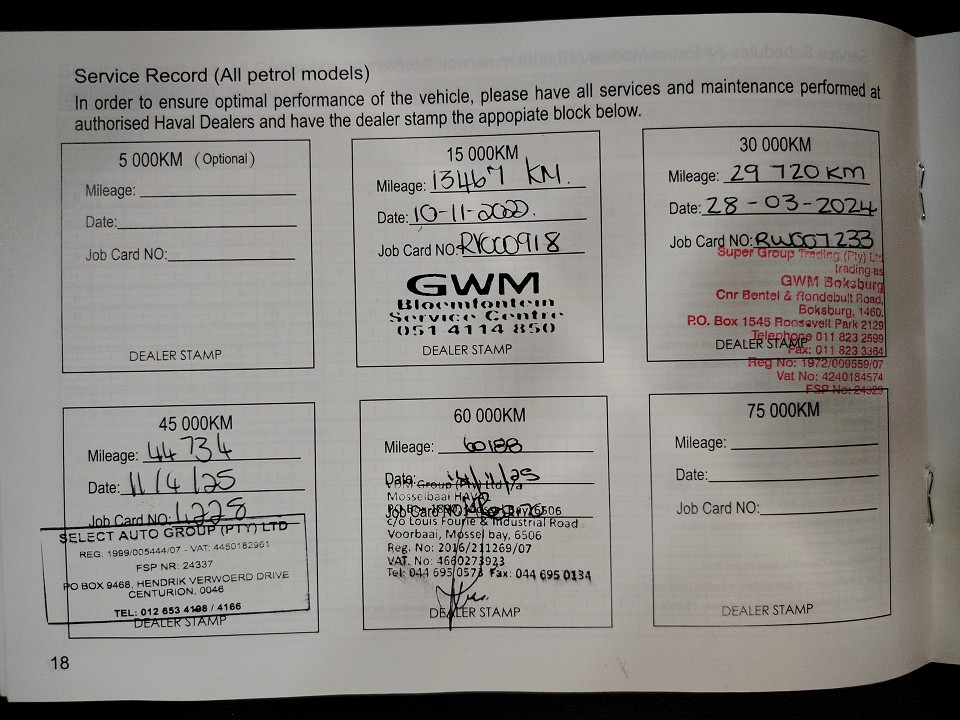 Service Record (All petrol models)
In order to ensure optimal performance of the vehicle, please have all services and maintenance performed at
authorised Haval Dealers and have the dealer stamp the appopiate block below.
5 000KM (Optional)
Mileage:
Date:
Job Card NO:
DEALER STAMP
15 000KM
Mileage: 13467 KM.
Date: 10-11-2022.
Job Card NO:
GWM
Bloemfontein
Service Centre
051 4114 850
DEALER STAMP
30 000KM
Mileage: 29 720 KM
Date: 28-03-2024
Job Card NO: RW007233
Super Group Trading (Pty) Ltd
trading as
GWM Boksburg
Cnr Bentel & Rondebult Road,
Boksburg, 1460.
P.O. Box 1545 Roosevelt Park 2129
Telephone 011 823 2599
DEALER STAMP
Fax: 011 823 3364
Reg No: 1972/009559/07
Vat No: 4240184574
FSP No: 24329
45 000KM
Mileage: 44 734
Date: 11/4/25
Job Card NO:
SELECT AUTO GROUP (PTY) LTD
REG. 1999/005444/07 - VAT: 4450182961
FSP NR: 24337
PO BOX 9468, HENDRIK VERWOERD DRIVE
CENTURION, 0046
TEL: 012 653 4198 / 4166
DEALER STAMP
60 000KM
Mileage: 60188
Date: 14/11/25
Group (Pty) Ltd t/a
Mosselbaai HAVAL
Job Card NO:
6506
c/o Louis Fourie & Industrial Road
Voorbaai, Mossel bay, 6506
Reg. No: 2016/211269/07
VAT. No: 4660273923
Tel: 044 695 0573 Fax: 044 695 0134
DEALER STAMP
75 000KM
Mileage:
Date:
Job Card NO:
DEALER STAMP
18